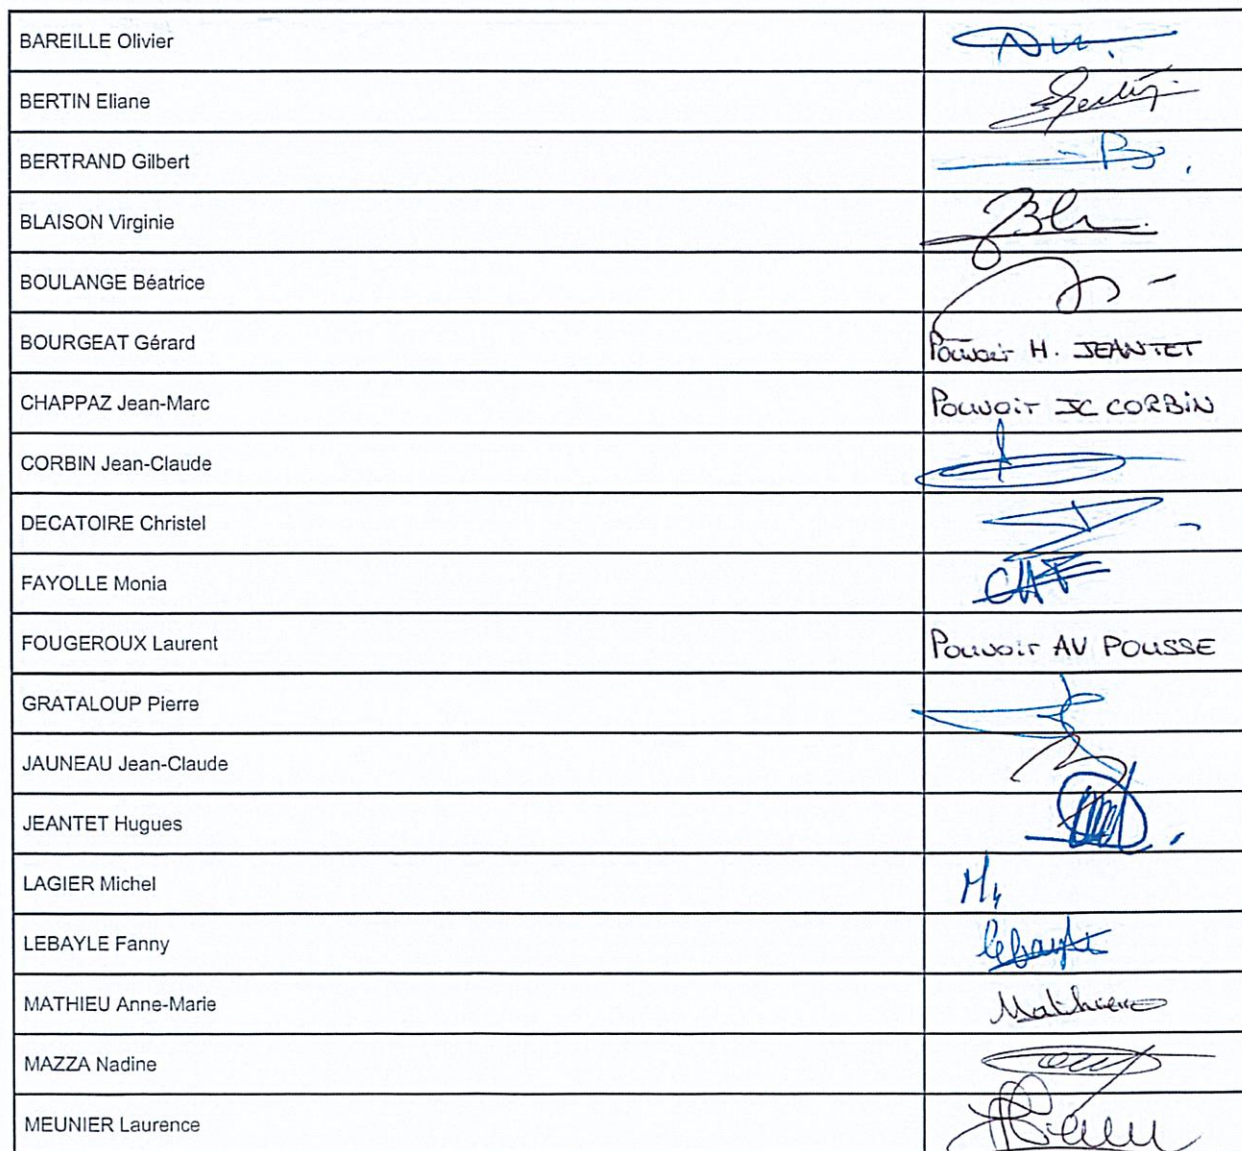 BAREILLE Olivier
BERTIN Eliane
BERTRAND Gilbert
BLAISON Virginie
BOULANGE Béatrice
BOURGEAT Gérard Pouvoir H. JEANTET
CHAPPAZ Jean-Marc Pouvoir JC CORBIN
CORBIN Jean-Claude
DECATOIRE Christel
FAYOLLE Monia
FOUGEROUX Laurent Pouvoir AV POUSSE
GRATALOUP Pierre
JAUNEAU Jean-Claude
JEANTET Hugues
LAGIER Michel
LEBAYLE Fanny Lebayle
MATHIEU Anne-Marie Mathieu
MAZZA Nadine
MEUNIER Laurence